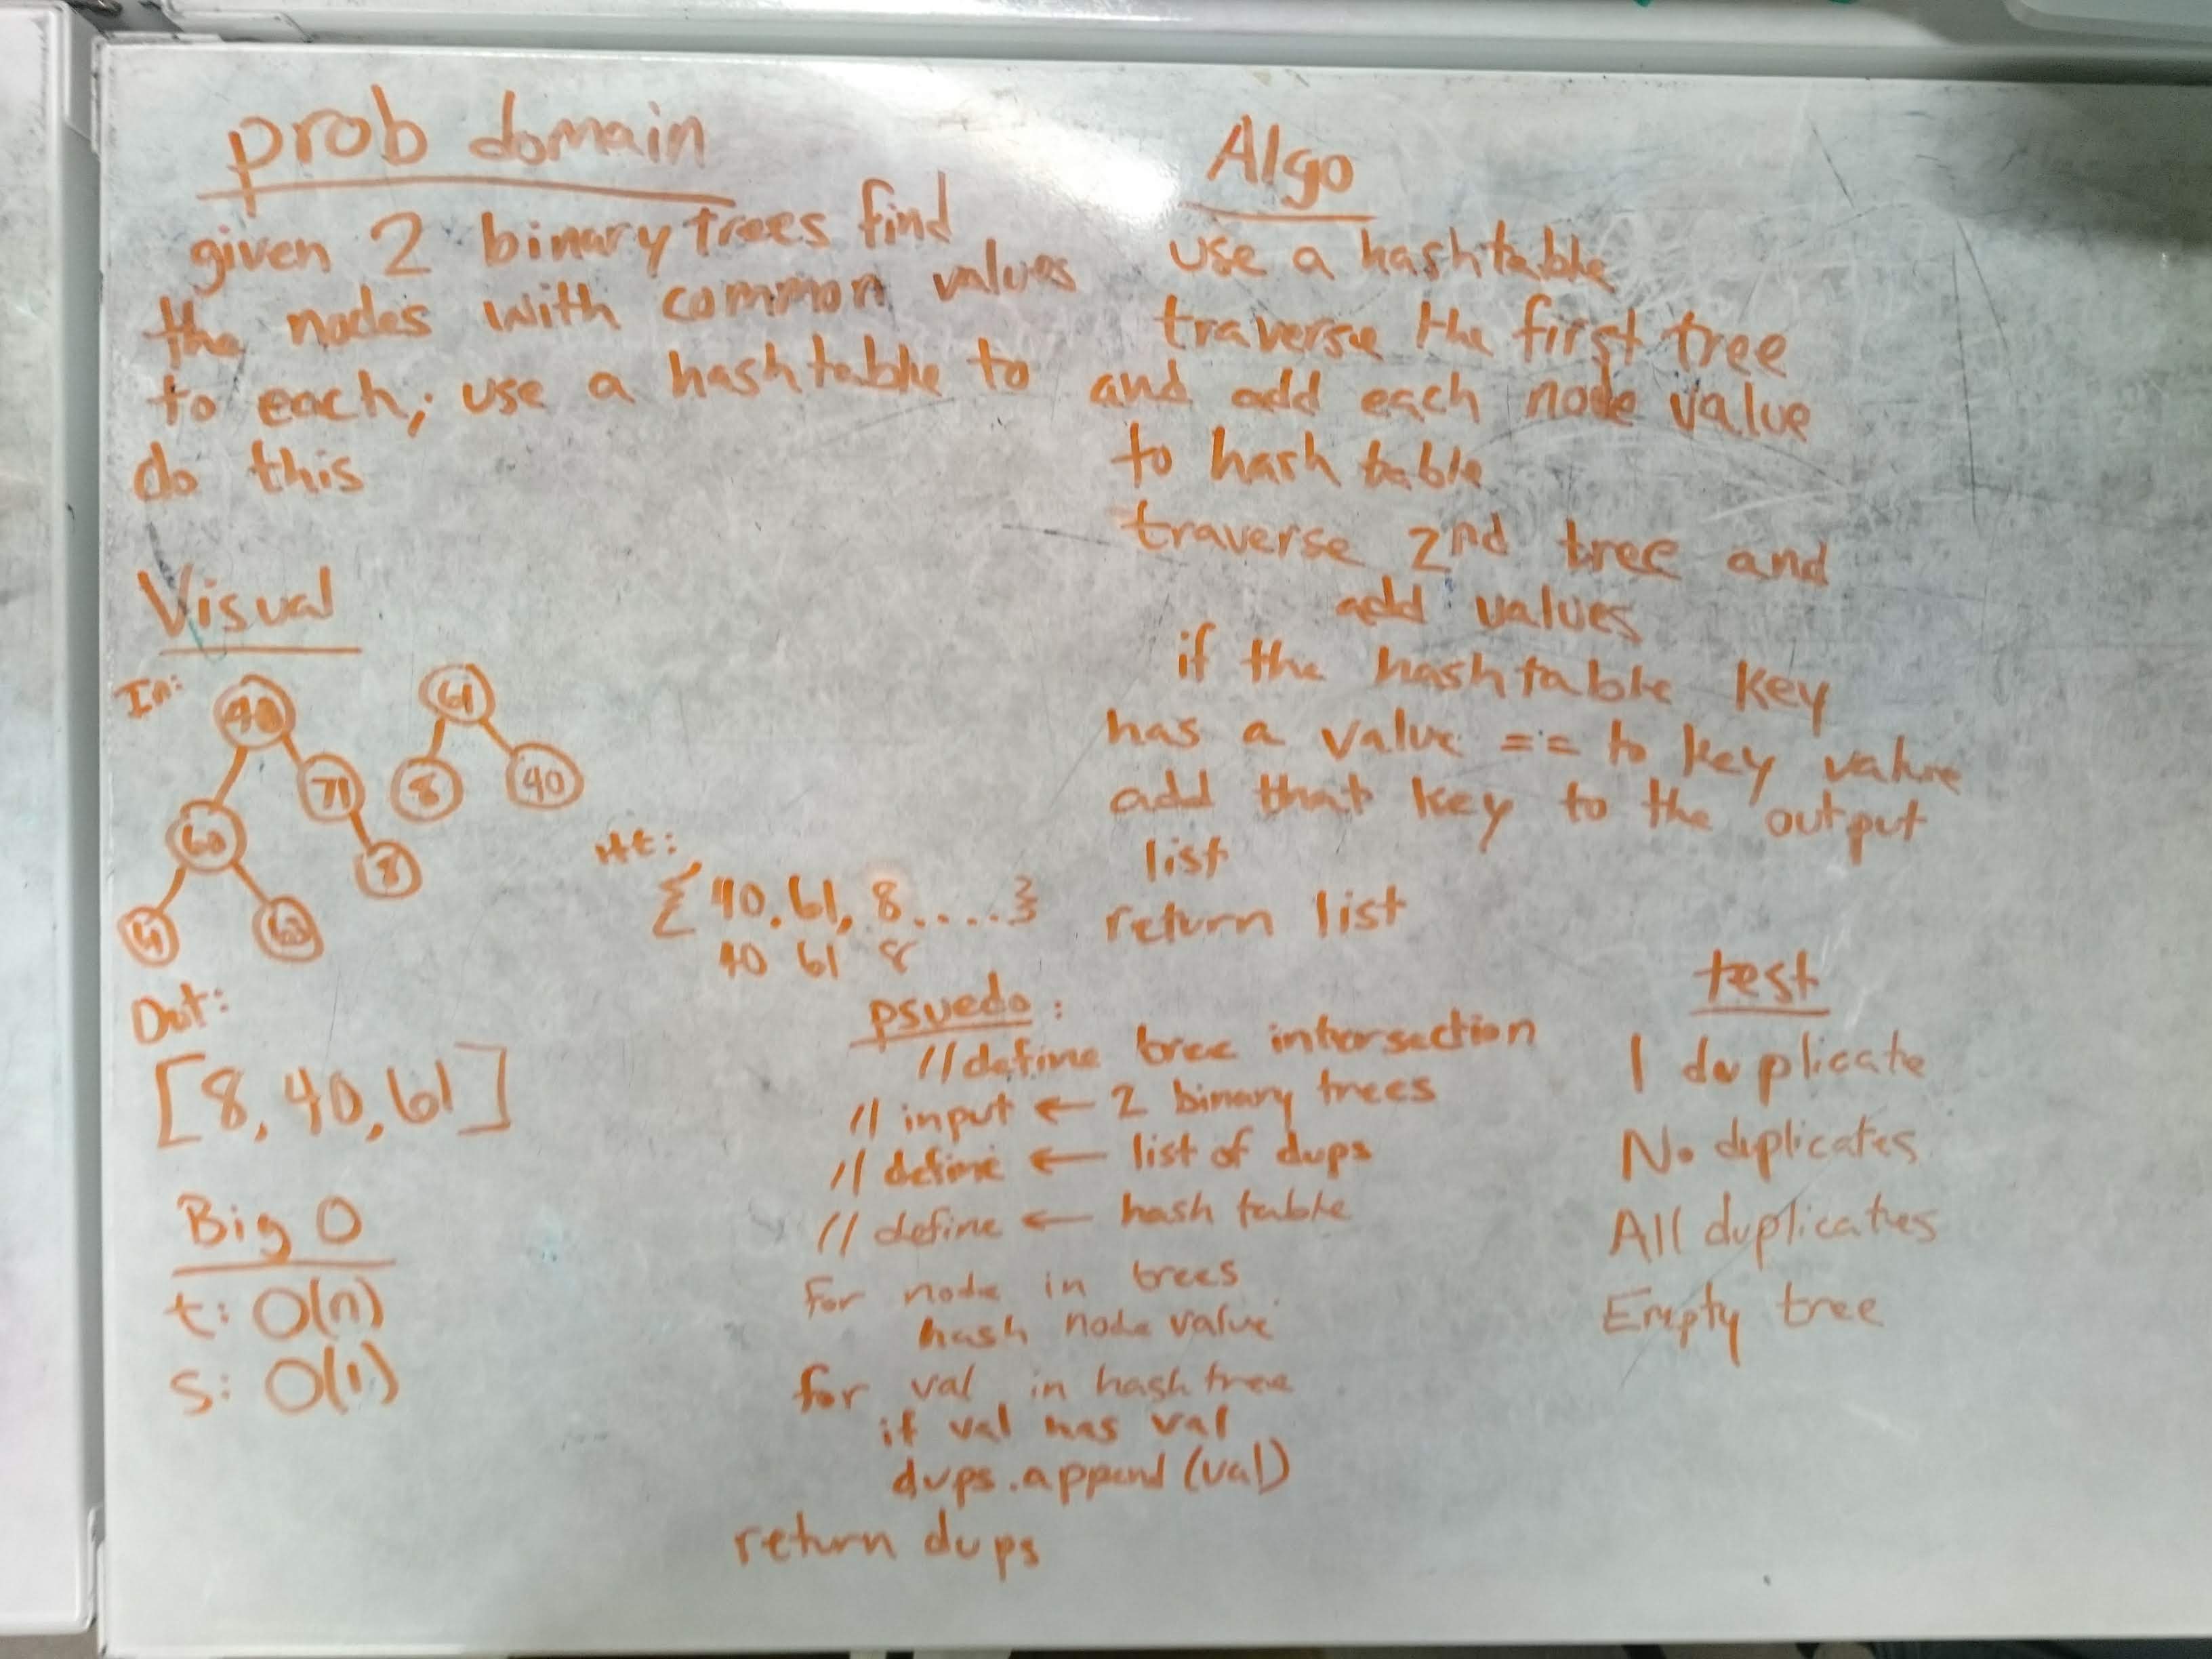 prob domain
given 2 binary trees find
the nodes with common values
to each; use a hashtable to
do this
Visual
In:
40
71
60
8
61
8
40
Ht:
{ 40, 61, 8 . . . . }
40 61 8
Out:
[8, 40, 61]
Big O
t: O(n)
s: O(1)
Algo
use a hashtable
traverse the first tree
and add each node value
to hash table
traverse 2nd tree and
add values
if the hashtable key
has a value == to key value
add that key to the output
list
return list
psuedo:
// define tree intersection
// input ← 2 binary trees
// define ← list of dups
// define ← hash table
for node in trees
hash node value
for val in hash tree
if val has val
dups.append(val)
return dups
test
1 duplicate
No duplicates
All duplicates
Empty tree